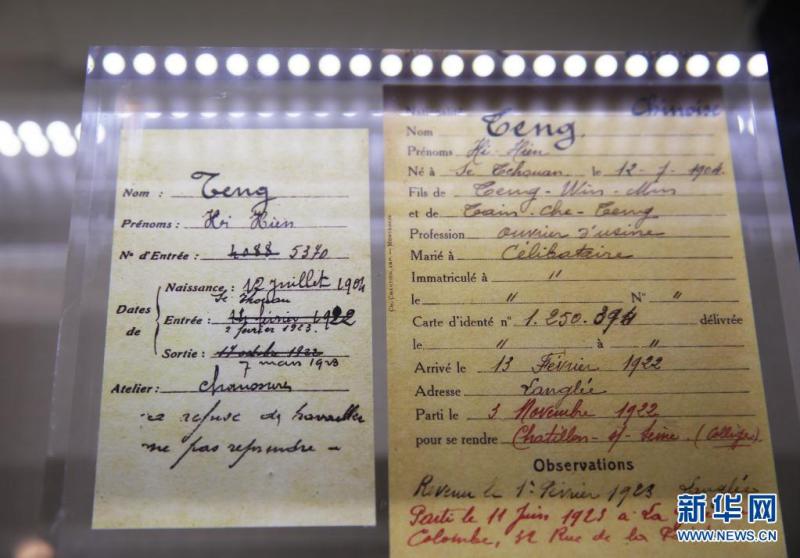 Nom : Teng
Prénoms : Hi Hien
N° d'Entrée : 4088 5370
Dates de
Naissance : 12 juillet 1904
Se Tchouan
Entrée : 14 février 1922
2 février 1923
Sortie : 17 octobre 1922
7 mars 1923
Atelier : Chaussures
a refusé de travailler
ne pas reprendre -
Nationalité Chinoise
Nom Teng
Prénoms Hi-Hien
Né à Se Tchouan le 12-7-1904
Fils de Teng-Win-Min
et de Tain-Che-Teng
Profession ouvrier d'usine
Marié à Célibataire
Immatriculé à "
le " N° "
Carte d'identé n° 1.250.394 délivrée
le " à "
Arrivé le 13 Février 1922
Adresse Langlée
Parti le 3 Novembre 1922
pour se rendre Chatillon-s/-Seine (Collège)
Observations
Revenu le 1er Février 1923 Langlée
Parti le 11 Juin 1923 a La
Colombe, 52 Rue de la
新华网
WWW.NEWS.CN